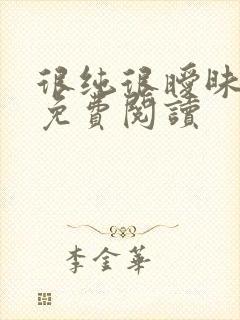 很纯很曖昧
免費閱讀
李金華